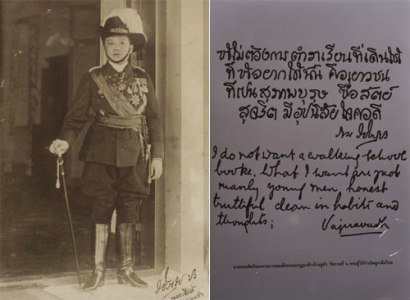 ข้าไม่ต้องการตำราเรียนที่เดินได้
ที่ข้าอยากได้นั้น คือเยาวชน
ที่เป็นสุภาพบุรุษ ซื่อสัตย์
สุจริต มีอุปนิสัยใจคอดี
I do not want a walking school
books, What I want are just
manly young men, honest
truthful clean in habits and
thoughts;
Vajiravudh